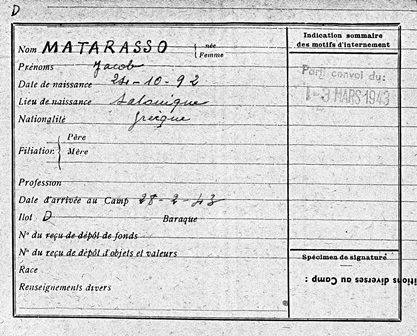 D
Nom MATARASSO { née Femme
Prénoms Jacob
Date de naissance 24-10-92
Lieu de naissance Salonique
Nationalité Grecque
Filiation { Père
Mère
Profession
Date d'arrivée au Camp 28-2-43
Ilot D Baraque
N° du reçu de dépôt de fonds
N° du reçu de dépôt d'objets et valeurs
Race
Renseignements divers
Indication sommaire
des motifs d'internement
Parti convoi du:
-3 MARS 1943
Spécimen de signature
itions diverses au Camp :